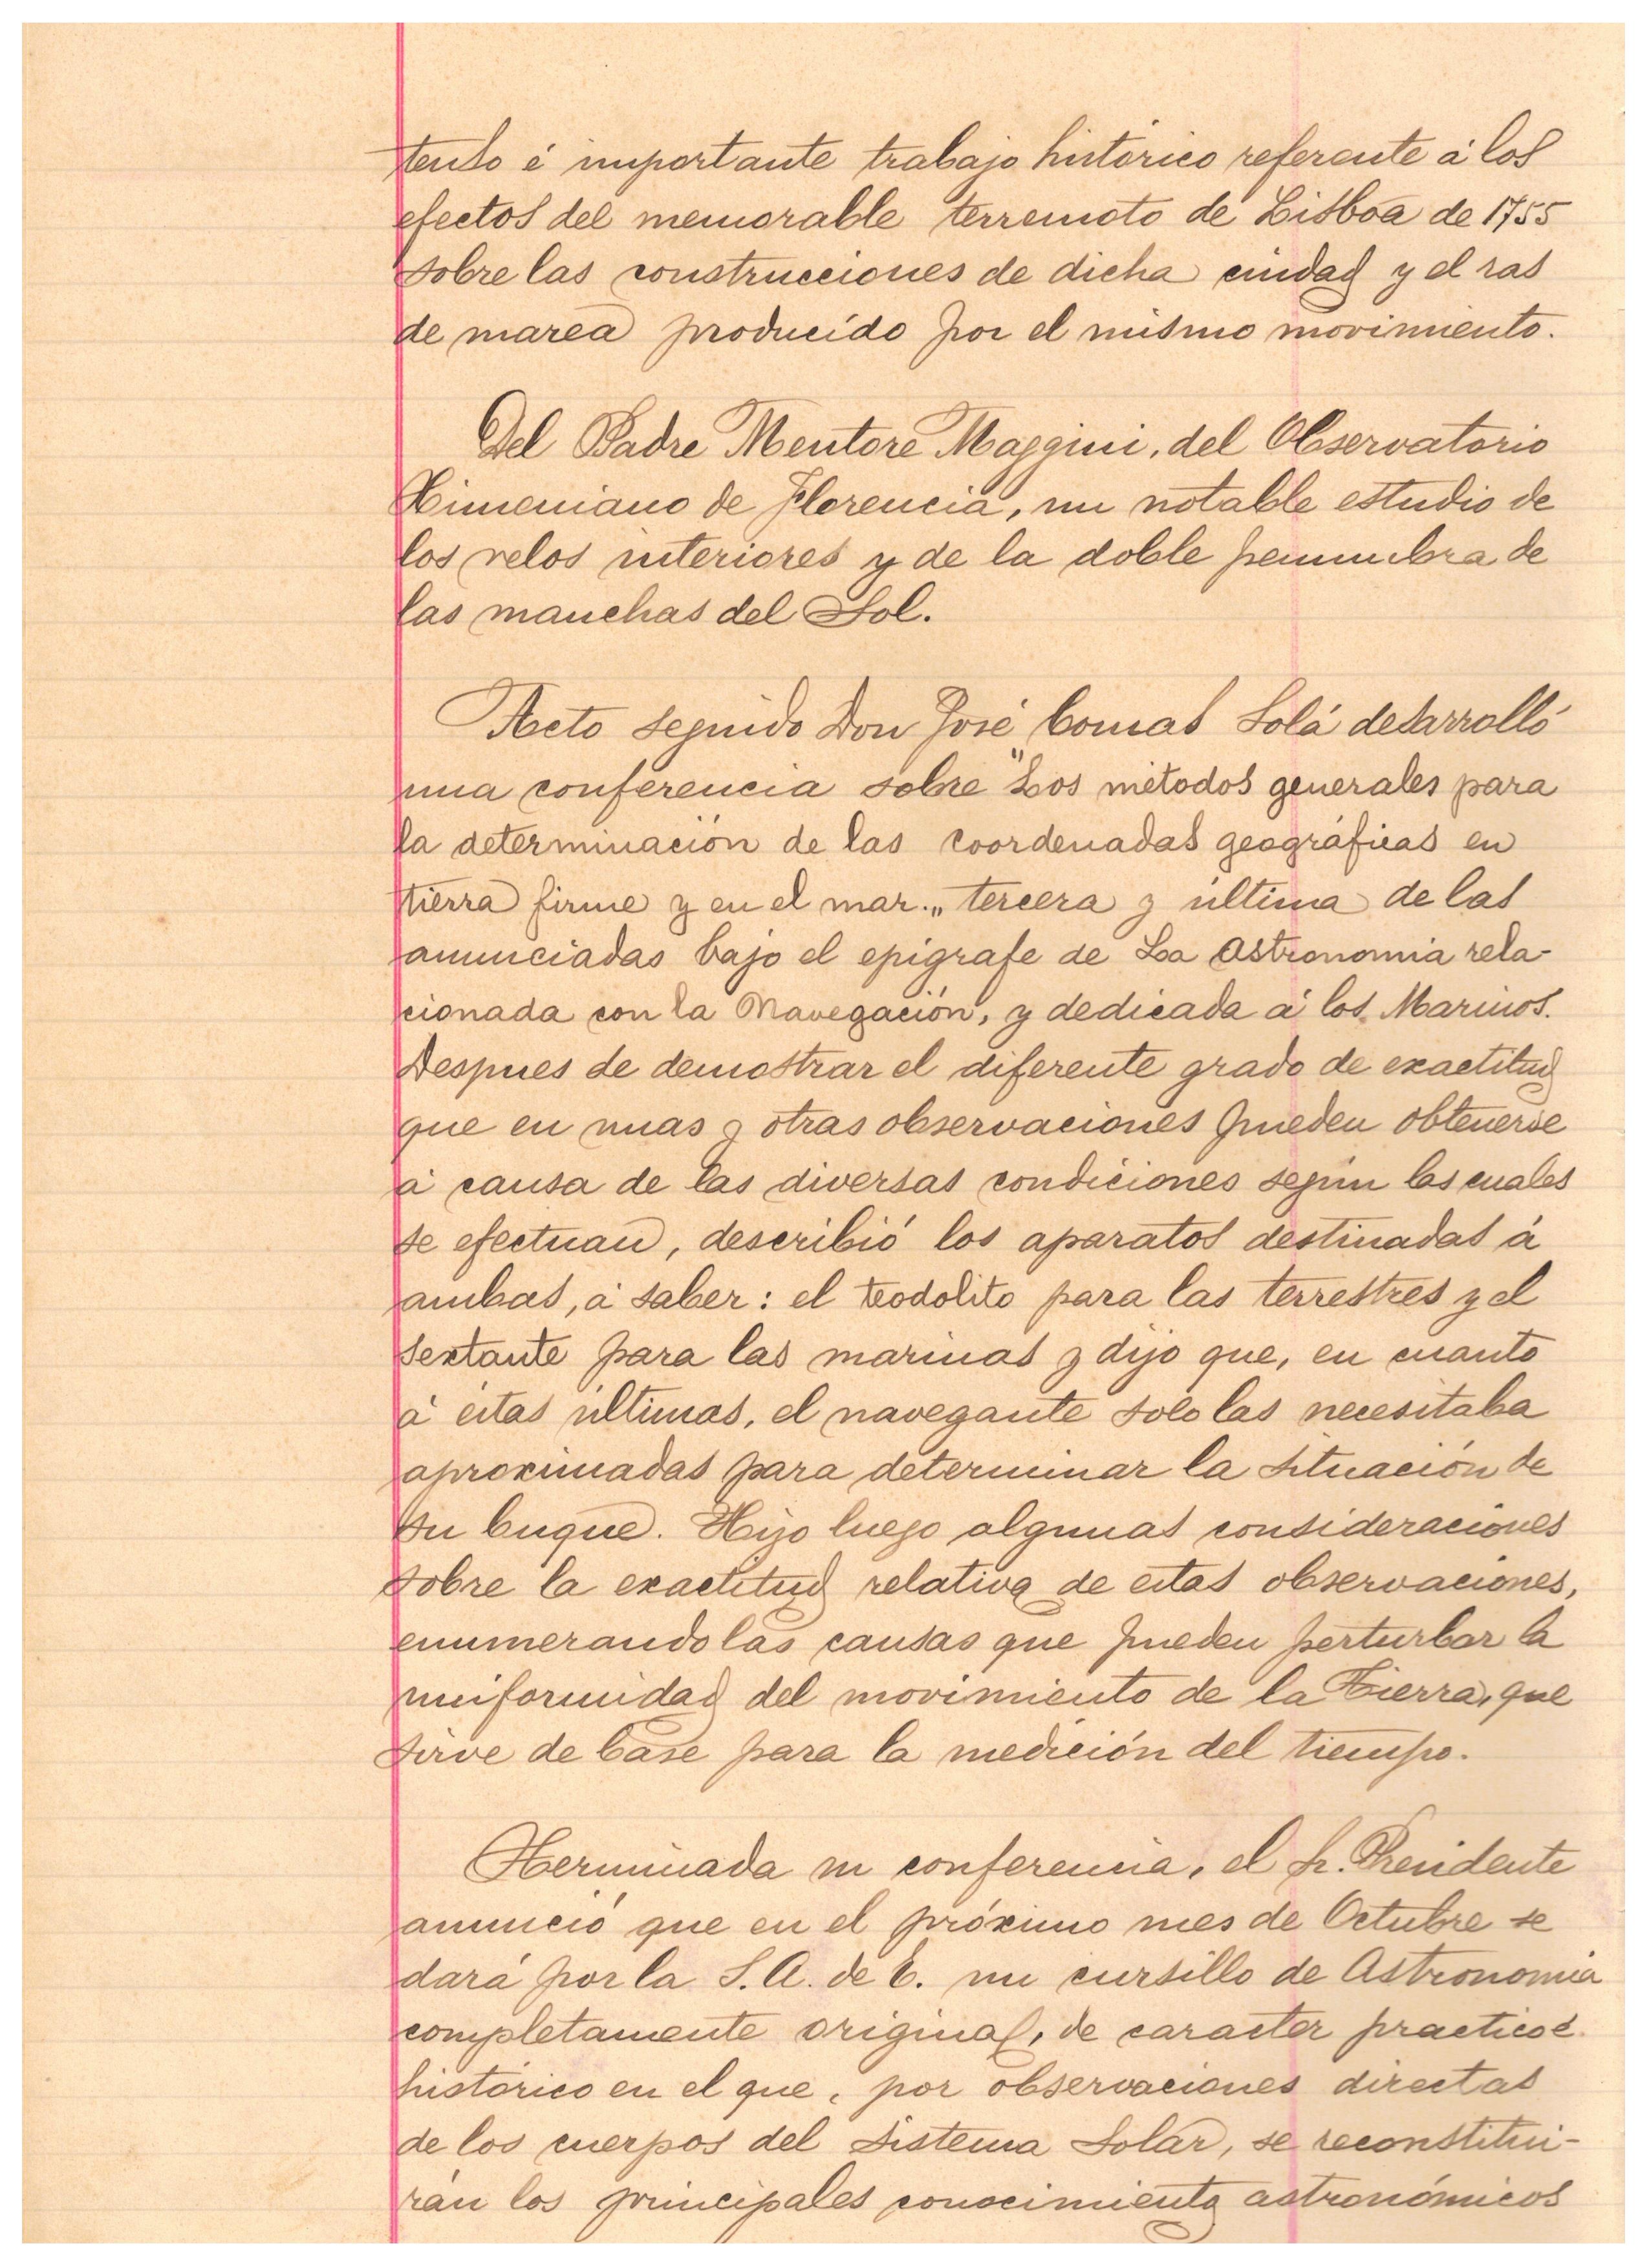 tenso é importante trabajo histórico referente á los
efectos del memorable terremoto de Lisboa de 1755
sobre las construcciones de dicha ciudad y el ras
de marea producido por el mismo movimiento.
Del Padre Mentore Maggini, del Observatorio
Ximeniano de Florencia, un notable estudio de
los velos interiores y de la doble penumbra de
las manchas del Sol.
Acto seguido Don José Comas Solá desarrolló
una conferencia sobre "Los métodos generales para
la determinación de las coordenadas geográficas en
tierra firme y en el mar.„ tercera y última de las
anunciadas bajo el epígrafe de La Astronomia rela-
cionada con la Navegación, y dedicada á los Marinos.
Despues de demostrar el diferente grado de exactitud
que en unas y otras observaciones pueden obtenerse
á causa de las diversas condiciones según las cuales
se efectuan, describió los aparatos destinadas á
ambas, á saber: el teodolito para las terrestres y el
sextante para las marinas y dijo que, en cuanto
á éstas últimas, el navegante solo las necesitaba
aproximadas para determinar la situación de
su buque. Hizo luego algunas consideraciones
sobre la exactitud relativa de estas observaciones,
enumerando las causas que pueden perturbar la
uniformidad del movimiento de la Tierra, que
sirve de base para la medición del tiempo.
Terminada su conferencia, el Sr. Presidente
anunció que en el próximo mes de Octubre se
dará por la S.A. de E. un cursillo de Astronomia
completamente original, de caracter practico é
histórico en el que, por observaciones directas
de los cuerpos del Sistema Solar, se reconstitui-
rán los principales conocimientos astronómicos